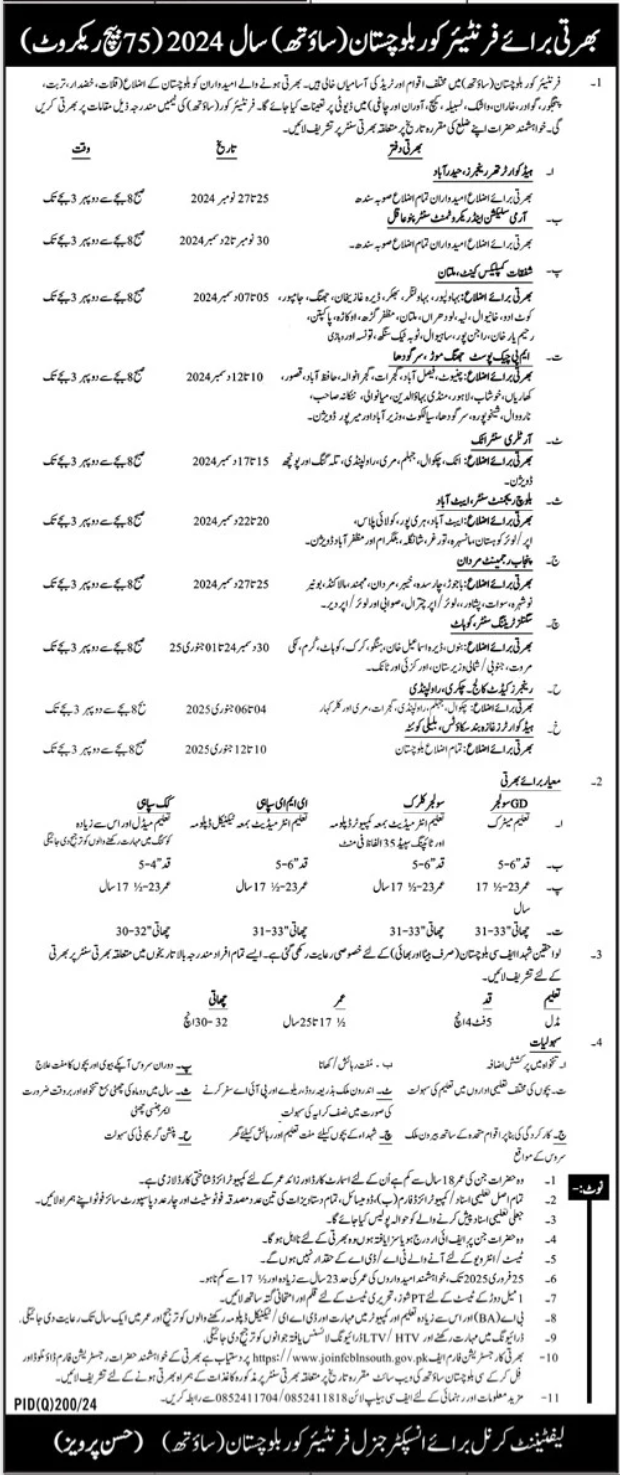 بھرتی برائے فرنٹیئر کور بلوچستان (ساؤتھ) سال 2024 (75 بیچ ریکروٹ)
1۔ فرنٹیئر کور بلوچستان (ساؤتھ) میں مختلف اقوام اور ٹریڈ کی آسامیاں خالی ہیں۔ بھرتی ہونے والے امیدواران کو بلوچستان کے اضلاع (قلات، خضدار، تربت،
پنجگور، گوادر، خاران، واشک، لسبیلہ، کیچ، آوران اور چاغی) میں ڈیوٹی پر تعینات کیا جائے گا۔ فرنٹیئر کور (ساؤتھ) کی ٹیمیں مندرجہ ذیل مقامات پر بھرتی کریں
گی۔ خواہشمند حضرات اپنے ضلع کی مقررہ تاریخ پر متعلقہ بھرتی سنٹر پر تشریف لائیں۔
بھرتی دفتر تاریخ وقت
ا۔ ہیڈ کوارٹر تھر رینجرز، حیدرآباد
بھرتی برائے اضلاع امیدواران تمام اضلاع صوبہ سندھ 25 تا 27 نومبر 2024 صبح 8 بجے سے دوپہر 3 بجے تک
ب۔ آرمی سلیکشن اینڈ ریکروٹمنٹ سنٹر پنوعاقل
بھرتی برائے اضلاع امیدواران تمام اضلاع صوبہ سندھ۔ 30 نومبر تا 2 دسمبر 2024 صبح 8 بجے سے دوپہر 3 بجے تک
پ۔ شفقات کمپلیکس کینٹ، ملتان
بھرتی برائے اضلاع: بہاولپور، بہاولنگر، بھکر، ڈیرہ غازیخان، جھنگ، جامپور، 05 تا 07 دسمبر 2024 صبح 8 بجے سے دوپہر 3 بجے تک
کوٹ ادو، خانیوال، لیہ، لودھراں، ملتان، مظفر گڑھ، اوکاڑہ، پاکپتن،
رحیم یار خان، راجن پور، ساہیوال، ٹوبہ ٹیک سنگھ، تونسہ اور وہاڑی
ت۔ ایم پی چیک پوسٹ جھنگ موڑ، سرگودھا
بھرتی برائے اضلاع: چنیوٹ، فیصل آباد، گجرات، گجرانوالہ، حافظ آباد، قصور، 10 تا 12 دسمبر 2024 صبح 8 بجے سے دوپہر 3 بجے تک
کھاریاں، خوشاب، لاہور، منڈی بہاؤالدین، میانوالی، ننکانہ صاحب،
نارووال، شیخوپورہ، سرگودھا، سیالکوٹ، وزیر آباد اور میرپور ڈویژن۔
ٹ۔ آرٹلری سنٹر اٹک
بھرتی برائے اضلاع: اٹک، چکوال، جہلم، مری، راولپنڈی، تلہ گنگ اور پونچھ 15 تا 17 دسمبر 2024 صبح 8 بجے سے دوپہر 3 بجے تک
ڈویژن۔
ث۔ بلوچ ریجمنٹ سنٹر، ایبٹ آباد
بھرتی برائے اضلاع: ایبٹ آباد، ہری پور، کولائی پلاس، 20 تا 22 دسمبر 2024 صبح 8 بجے سے دوپہر 3 بجے تک
اپر / لوئر کوہستان، مانسہرہ، تورغر، شانگلہ، بٹگرام اور مظفر آباد ڈویژن۔
ج۔ پنجاب رجمینٹ مردان
بھرتی برائے اضلاع: باجوڑ، چارسدہ، خیبر، مردان، مہمند، مالاکنڈ، بونیر 25 تا 27 دسمبر 2024 صبح 8 بجے سے دوپہر 3 بجے تک
نوشہرہ، سوات، پشاور، لوئر / اپر چترال، صوابی اور لوئر / اپر دیر۔
چ۔ سگنلز ٹریننگ سنٹر، کوہاٹ
بھرتی برائے اضلاع: بنوں، ڈیرہ اسماعیل خان، ہنگو، کرک، کوہاٹ، کرم، لکی 30 دسمبر 24 تا 01 جنوری 25 صبح 8 بجے سے دوپہر 3 بجے تک
مروت، جنوبی / شمالی وزیرستان، اورکزئی اور ٹانک۔
ح۔ رینجرز کیڈٹ کالج، چکری، راولپنڈی
بھرتی برائے اضلاع: چکوال، جہلم، راولپنڈی، گجرات، مری اور کلر کہار 04 تا 06 جنوری 2025 صبح 8 بجے سے دوپہر 3 بجے تک
خ۔ ہیڈ کوارٹرز غازہ بند سکاؤٹس، بلیلی کوئٹہ
بھرتی برائے اضلاع: تمام اضلاع بلوچستان 10 تا 12 جنوری 2025 صبح 8 بجے سے دوپہر 3 بجے تک
2۔ معیار برائے بھرتی
GD سولجر سولجر کلرک ای ایم ای سپاہی کک سپاہی
ا۔ تعلیم میٹرک تعلیم انٹر میڈیٹ بمعہ کمپیوٹر ڈپلومہ تعلیم انٹر میڈیٹ بمعہ ٹیکنیکل ڈپلومہ تعلیم میڈل اور اس سے زیادہ
اور ٹائپنگ سپیڈ 35 الفاظ فی منٹ کوکنگ میں مہارت رکھنے والوں کو ترجیح دی جائیگی
ب۔ قد "6-5 قد "6-5 قد "6-5 قد "4-5
پ۔ عمر 23-½ 17 عمر 23-½ 17 سال عمر 23-½ 17 سال عمر 23-½ 17 سال
سال
ت۔ چھاتی "33-31 چھاتی "33-31 چھاتی "33-31 چھاتی "32-30
3۔ لواحقین شہدا ایف سی بلوچستان (صرف بیٹا اور بھائی) کے لئے خصوصی رعایت رکھی گئی ہے۔ ایسے تمام افراد مندرجہ بالا تاریخوں میں متعلقہ بھرتی سنٹر پر بھرتی
کے لئے تشریف لائیں۔
تعلیم قد عمر چھاتی
مڈل 5 فٹ 4 انچ ½ 17 تا 25 سال 32 -30 انچ
4۔ سہولیات
ا۔ تنخواہ میں پرکشش اضافہ ب۔ مفت رہائش / کھانا پ۔ دوران سروس آپکے بیوی اور بچوں کا مفت علاج
ت۔ بچوں کی مختلف تعلیمی اداروں میں تعلیم کی سہولت ٹ۔ اندرون ملک بذریعہ روڈ، ریلوے اور پی آئی اے سفر کرنے ث۔ سال میں دو ماہ کی چھٹی بمع تنخواہ اور بروقت ضرورت
کی صورت میں نصف کرایہ کی سہولت ایمرجنسی چھٹی
ج۔ کارکردگی کی بنا پر اقوام متحدہ کے ساتھ بیرون ملک چ۔ شہداء کے بچوں کیلئے مفت تعلیم اور رہائش کیلئے گھر ح۔ پنشن گریجوئی کی سہولت
سروس کے مواقع
نوٹ:-
1۔ وہ حضرات جن کی عمر 18 سال سے کم ہے اُن کے لئے اسمارٹ کارڈ اور زائد عمر کے لئے کمپیوٹرائزڈ شناختی کارڈ لازمی ہے۔
2۔ تمام اصل تعلیمی اسناد / کمپیوٹرائزڈ فارم (ب)، ڈومیسائل، تمام دستاویزات کی تین عدد مصدقہ فوٹو سٹیٹ اور چار عدد پاسپورٹ سائز فوٹو اپنے ہمراہ لائیں۔
3۔ جعلی تعلیمی اسناد پیش کرنے والے کو حوالہ پولیس کیا جائے گا۔
4۔ وہ حضرات جن پر ایف آئی آر درج ہو یا سزا یافتہ ہوں وہ بھرتی کے لئے نااہل ہو گا۔
5۔ ٹیسٹ / انٹرویو کے لئے آنے والے ٹی اے / ڈی اے کے حقدار نہیں ہوں گے۔
6۔ 25 فروری 2025 تک، خواہشمند امیدواروں کی عمر کی حد 23 سال سے زیادہ اور ½ 17 سے کم نہ ہو۔
7۔ 1 میل دوڑ کے ٹیسٹ کے لئے PT شوز، تحریری ٹیسٹ کے لئے قلم اور امتحانی گتہ ساتھ لائیں۔
8۔ بی اے (BA) اور اس سے زیادہ تعلیم اور کمپیوٹر میں مہارت اور ڈی اے ای / ٹیکنیکل ڈپلومہ رکھنے والوں کو ترجیح اور عمر میں ایک سال تک رعایت دی جائیگی۔
9۔ ڈرائیونگ میں مہارت رکھنے اور LTV / HTV ڈرائیونگ لائسنس یافتہ جوانوں کو ترجیح دی جائیگی۔
10۔ بھرتی کا رجسٹریشن فارم ایف https://www.joinfcblnsouth.gov.pk پر دستیاب ہے بھرتی کے خواہشمند حضرات رجسٹریشن فارم ڈاؤنلوڈ اور
فل کر کے سی بلوچستان ساؤتھ کی ویب سائٹ مقررہ تاریخ پر متعلقہ بھرتی سنٹر پر مذکورہ کاغذات کے ہمراہ بھرتی ہونے کے لئے تشریف لائیں۔
11۔ مزید معلومات اور رہنمائی کے لئے ایف سی ہیلپ لائن 0852411818/0852411704 سے رابطہ کریں۔
PID(Q)200/24
لیفٹیننٹ کرنل برائے انسپکٹر جنرل فرنٹیئر کور بلوچستان (ساؤتھ) (حسن پرویز)